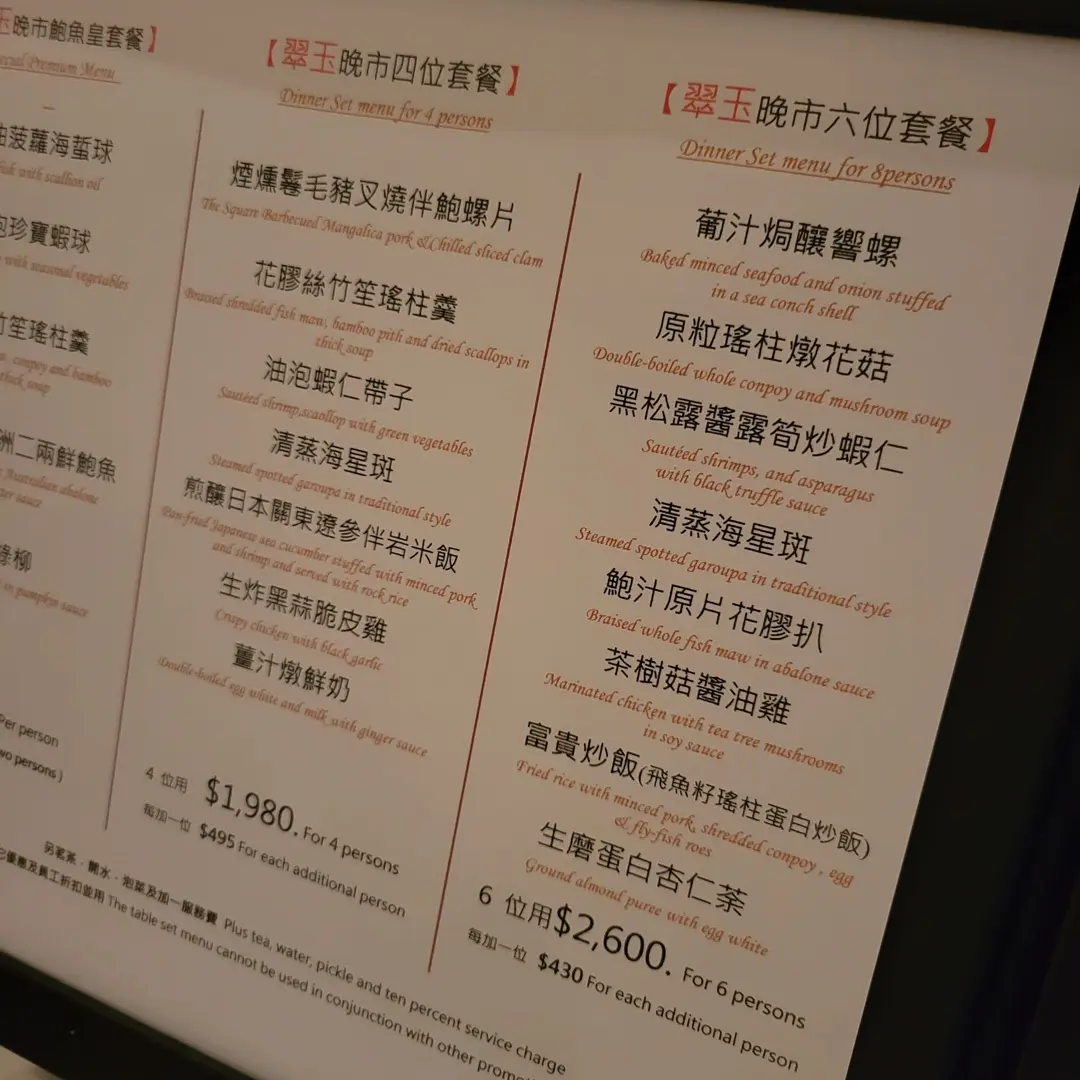 玉晚市鮑魚皇套餐】
Premium Menu
菠蘿海蜇球
with scallion oil
珍寶蝦球
with seasonal vegetables
竹笙瑤柱羹
conpoy and bamboo
thick soup
洲二兩鮮鮑魚
Australian abalone
sauce
柳
pumpkin sauce
Per person
two persons)
【翠玉晚市四位套餐】
Dinner Set menu for 4 persons
煙燻鬈毛豬叉燒伴鮑螺片
The Square Barbecued Mangalica pork & Chilled sliced clam
花膠絲竹笙瑤柱羹
Braised shredded fish maw, bamboo pith and dried scallops in
thick soup
油泡蝦仁帶子
Sautéed shrimp,scaollop with green vegetables
清蒸海星斑
Steamed spotted garoupa in traditional style
煎釀日本關東遼參伴岩米飯
Pan-fried Japanese sea cucumber stuffed with minced pork
and shrimp and served with rock rice
生炸黑蒜脆皮雞
Crispy chicken with black garlic
薑汁燉鮮奶
Double-boiled egg white and milk with ginger sauce
4 位用 $1,980. For 4 persons
每加一位 $495 For each additional person
【翠玉晚市六位套餐】
Dinner Set menu for 8persons
葡汁焗釀響螺
Baked minced seafood and onion stuffed
in a sea conch shell
原粒瑤柱燉花菇
Double-boiled whole conpoy and mushroom soup
黑松露醬露筍炒蝦仁
Sautéed shrimps, and asparagus
with black truffle sauce
清蒸海星斑
Steamed spotted garoupa in traditional style
鮑汁原片花膠扒
Braised whole fish maw in abalone sauce
茶樹菇醬油雞
Marinated chicken with tea tree mushrooms
in soy sauce
富貴炒飯(飛魚籽瑤柱蛋白炒飯)
Fried rice with minced pork, shredded conpoy , egg
& fly-fish roes
生磨蛋白杏仁荼
Ground almond puree with egg white
6 位用 $2,600. For 6 persons
每加一位 $430 For each additional person
另茗茶．開水．泡菜及加一服務費 Plus tea, water, pickle and ten percent service charge
優惠及員工折扣並用 The table set menu cannot be used in conjunction with other